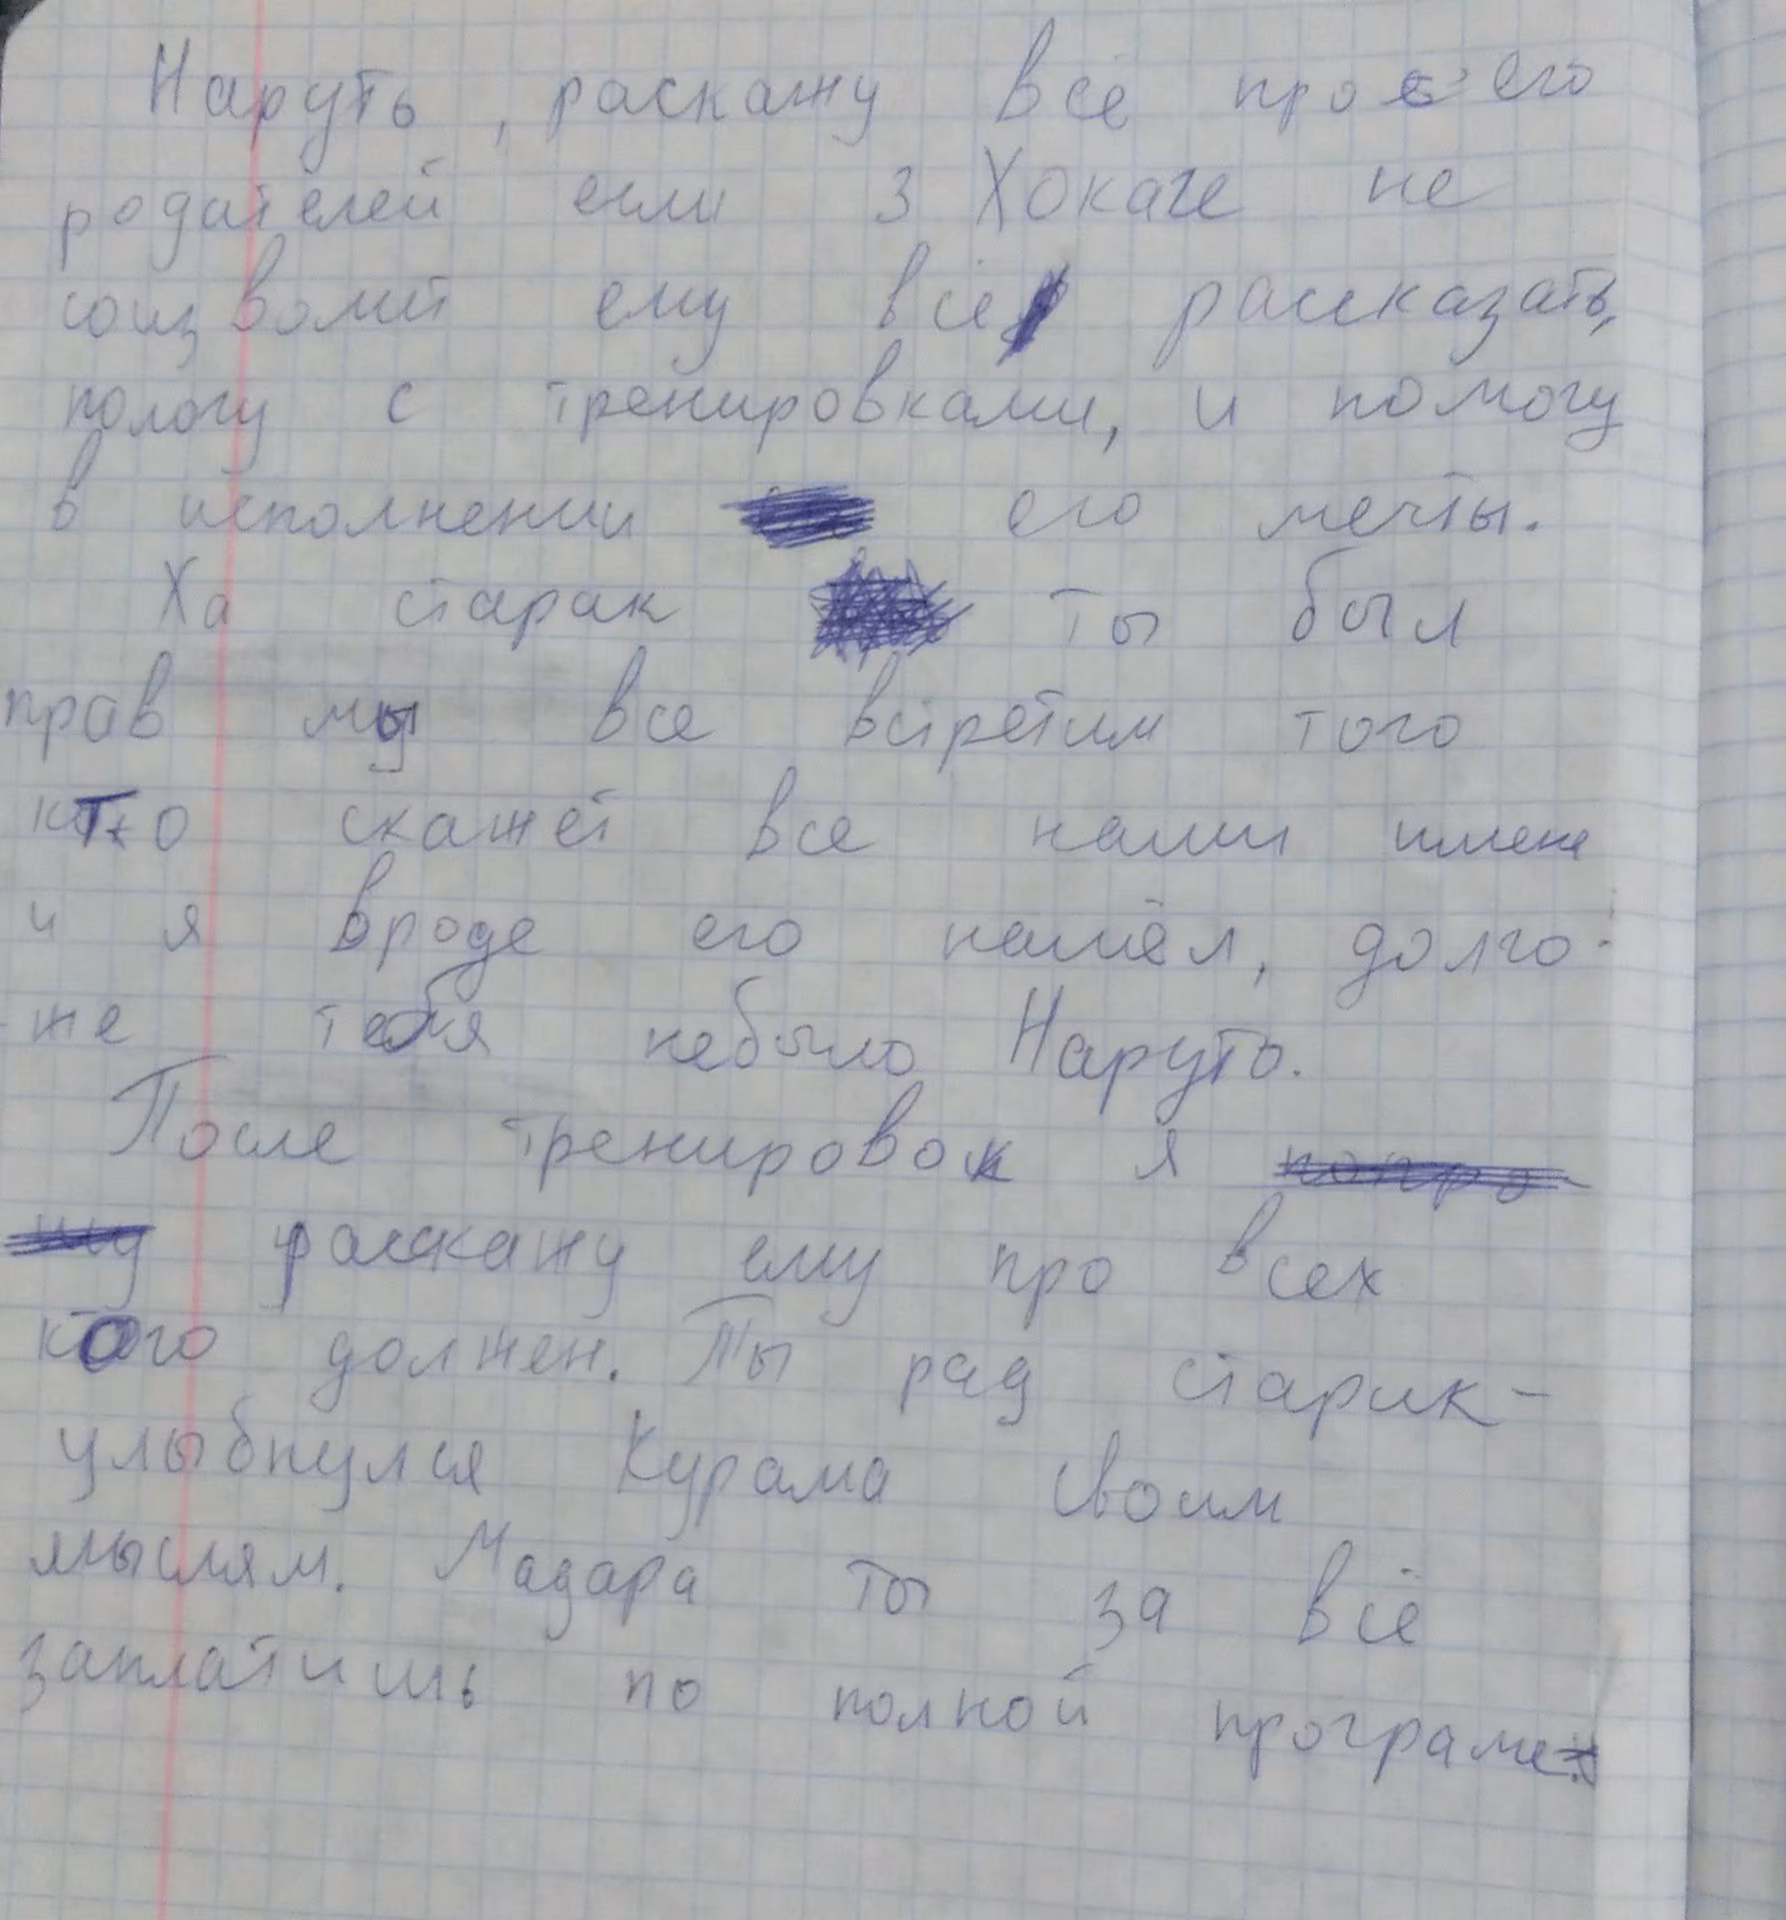 Наруть, раскажу всё про его
родателей если 3 Хокаге не
соизволит ему всё рассказать,
пологу с тренировками, и помогу
в исполнении его мечты.
Ха старак ты был
прав мы все встретим того
кто скажет все наши имена
и я вроде его нашёл, долго
же тебя небыло Наруто.
После тренировок я попро
шу расскажу ему про всех
кого должен. Ты рад старик-
улыбнулся Курама своим
мыслям. Мадара ты за всё
заплатишь по полной програме.